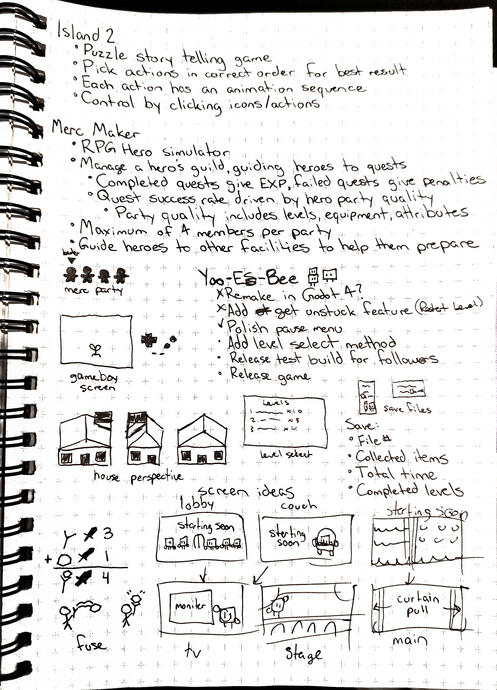 Island 2
• Puzzle story telling game
• Pick actions in correct order for best result
• Each action has an animation sequence
• Control by clicking icons/actions
Merc Maker
• RPG Hero simulator
• Manage a hero's guild, guiding heroes to quests
• Completed quests give EXP, failed quests give penalties
• Quest success rate driven by hero party quality
• Party quality includes levels, equipment, attributes
• Maximum of 4 members per party
• Guide heroes to other facilities to help them prepare
merc party
Yoo-Es-Bee
x Remake in Godot 4?
x Add get unstuck feature (Reset Level)
✓ Polish pause menu
• Add level select method
• Release test build for followers
• Release game
gameboy
screen
Levels
1
2
3
level select
save files
Save:
• File#
• Collected items
• Total time
• Completed levels
house perspective
screen ideas
lobby
couch
starting soon
starting soon
starting
soon
3
+ 1
4
fuse
moniter
tv
stage
curtain
pull
main